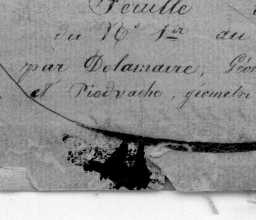 Feuille
du N° 1er au
par Delamaire, Géo
et Piedvache, géomètr